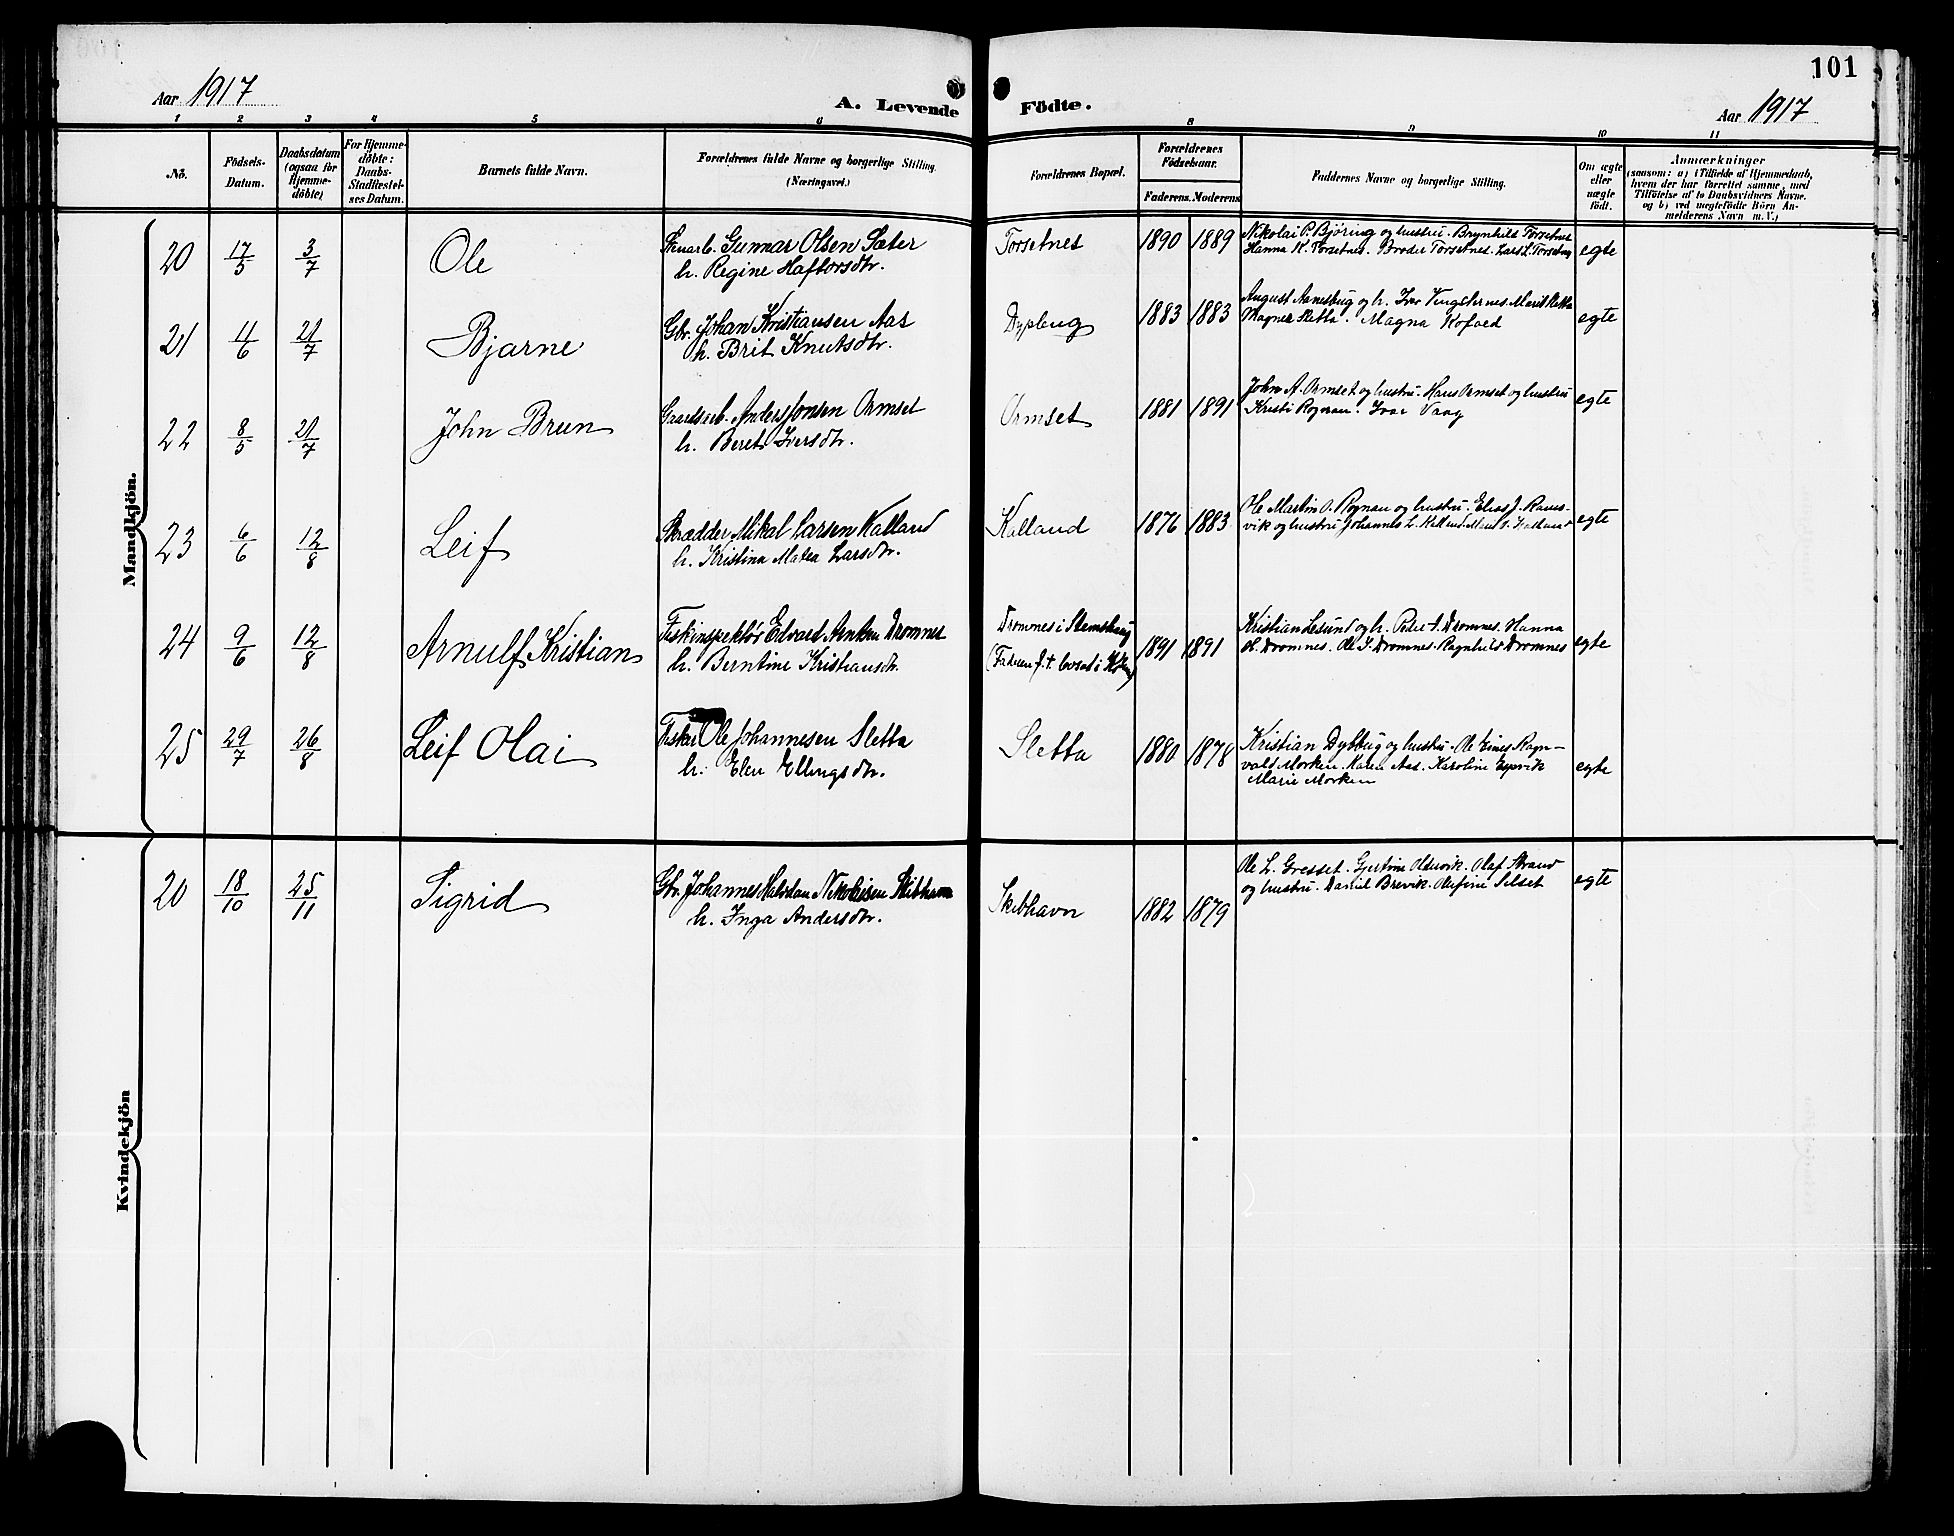 101
Aar 1917
A. Levende Födte.
Aar 1917
1 2 3 4 5 6 8 9 10 11
No.
Födsels-Datum.
Daabsdatum (ogsaa for Hjemme-döbte)
For Hjemme-döbte: Daabs-Stadfæstel-ses Datum.
Barnets fulde Navn.
Forældrenes fulde Navne og borgerlige Stilling.
(Næringsvei.)
Forældrenes Bopæl.
Forældrenes Födselsaar.
Faderens. Moderens
Faddernes Navne og borgerlige Stilling.
Om ægte eller uægte födt.
Anmærkninger
(saasom: a) i Tilfælde af Hjemmedaab,
hvem der har forrettet samme, med
Tilföielse af to Daabsvidners Navne.
og b) ved uegtefödte Börn An-
melderens Navn m. V.)
Mandkjön.
20 17/5 3/7 Ole
Gunnar Olsen Sæter
h. Regine Haftorsdtr.
Torsetnes 1890 1889
Nikolai P. Björing og hustru. Brynhild Torsetnes
Hanna K. Torsetnes. Broder Torsetnes. Lars L. Torsetnes
egte
21 11/6 21/7 Bjarne
Gbr. Johan Kristiansen Aas
h. Brit Knutsdtr.
1883 1883
August Aanesbug og h. Ivar Marit Sletta
Magne Sletta. Magna Kofoed
egte
22 8/5 21/7 John Brun
Gaardsarb. Anders Jonsen Ormset
h. Beret Iversdtr.
Ormset 1881 1891
John A. Ormset og hustru. Hans Ormset og hustru
Kristi Rognan. Ivar Vaag
egte
23 6/6 12/8 Leif
Skrædder Mikal Larsen Kalland
h. Kristina Matea Larsdtr.
Kalland 1876 1883
Ole Martin O. Rognan og hustru. Elias J. Rams-
vik og hustru Johannes L. Kalland
egte
24 9/6 12/8 Arnulf Kristian
Fiskinspektör Edvard Dromnes
h. Berntine Kristiansdtr.
Dromnes i Stemshaug
(Faderen f. t. bosat i
1891 1891
Kristian Lesund og h. Peder Dromnes. Hanna
Dromnes. Ole Dromnes. Ragnhild Dromnes
egte
25 29/7 26/8 Leif Olai
Fisker Ole Johannesen Sletta
h. Elen Ellingsdtr.
Sletta 1880 1878
Kristian Dybbug og hustru. Ole Eines Ragn-
vald Morken. Karen Aas. Karoline Espvik
Marie Morken
egte
Kvindekjön
20 18/10 25/11 Sigrid
Gbr. Johannes Halvdan Nikolaisen Skibhavn
h. Inga Andersdtr.
Skibhavn 1882 1879
Ole L. Gresset. Gjertine Oldervik. Olaf Strand
og hustru. Daniel Brevik. Olufine Selset
egte